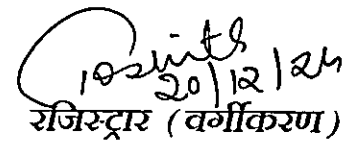 20/12/24
रजिस्ट्रार (वर्गीकरण)